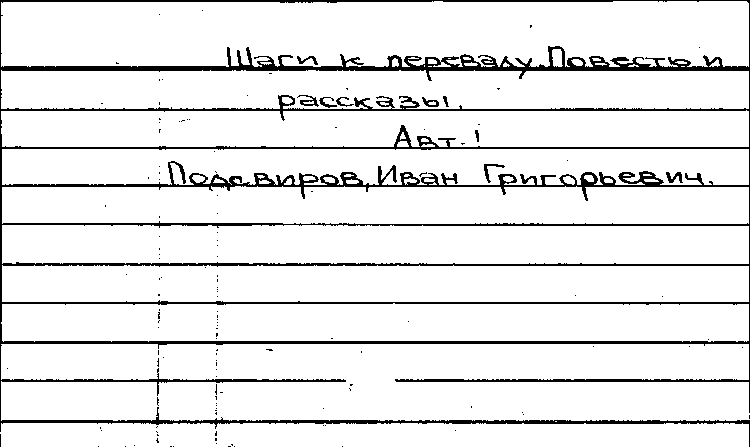 Шаги к перевалу. Повесть и
рассказы.
Авт.!
Подсвиров, Иван Григорьевич.